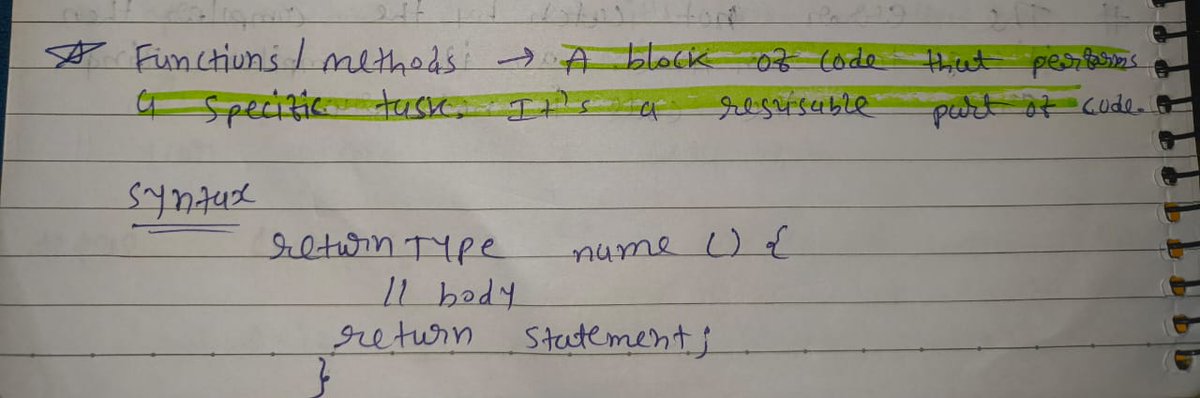 ☆ Functions / methods → A block of code that performs
a specific task. It's a resuisable part of code.
Syntax
return TYPE name () {
// body
return statement;
}